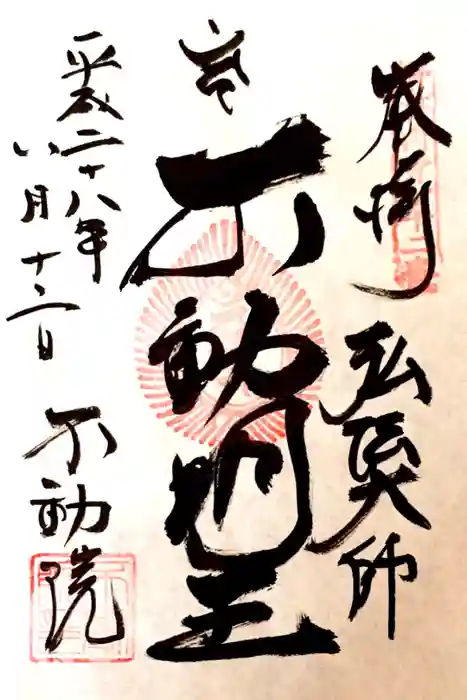 弘法大師
不動明王
平成二十八年
八月十二日
不動院